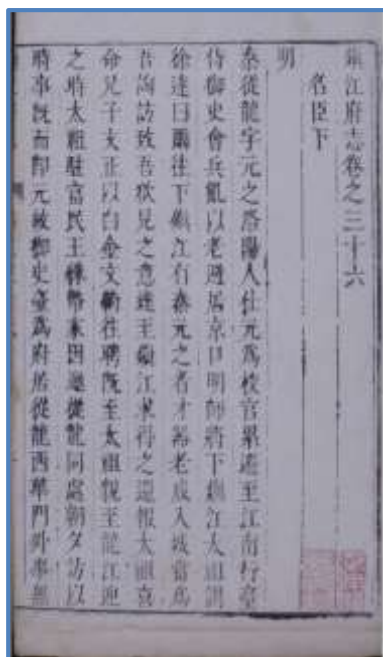 鎮江府志卷之三十六
名臣下
明
秦從龍字元之洛陽人仕元爲校官累遷至江南行臺
侍御史會兵亂以老避居京口明師將下鎮江太祖謂
徐達曰爾往下鎮江有秦元之者才器老成入城當爲
吾詢訪致吾欲見之意達至鎮江求得之還報太祖喜
命兄子文正以白金文綺往聘既至太祖親至龍江迎
之時太祖駐富民王綵帛家因邀從龍同處朝夕訪以
時事既而卽元故御史臺爲府居從龍西華門外事無